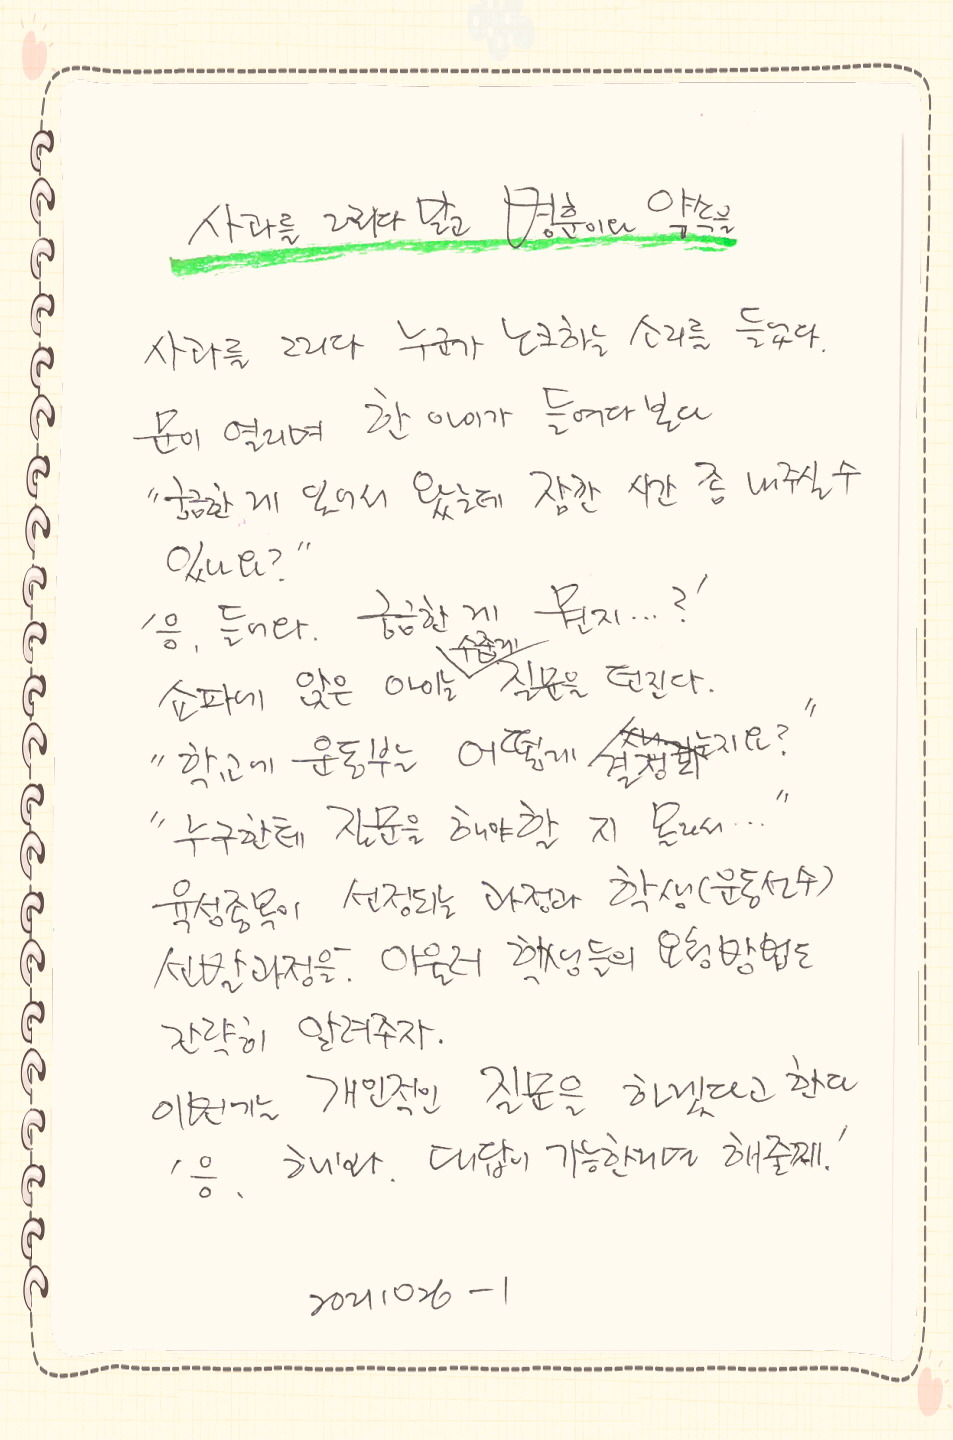 사과를 그리다 말고 명훈이와 약속을
사과를 그리다 누군가 노크하는 소리를 듣는다.
문이 열리며 한 아이가 들여다 본다
"궁금한 게 있어서 왔는데 잠깐 시간 좀 내주실 수
있나요?"
'응, 들어와. 궁금한 게 뭔지...?'
수줍게
쇼파에 앉은 아이는 질문을 던진다.
"학교에 운동부는 어떻게 결정되는지요?"
"누구한테 질문을 해야할 지 몰라서..."
육성종목이 선정되는 과정과 학생(운동선수)
선발과정을. 아울러 학생들의 모험방법도
간략히 알려주자.
이번에는 개인적인 질문을 하겠다고 한다
'응, 해봐. 대답이 가능한거면 해줄께.'
20211026 -1